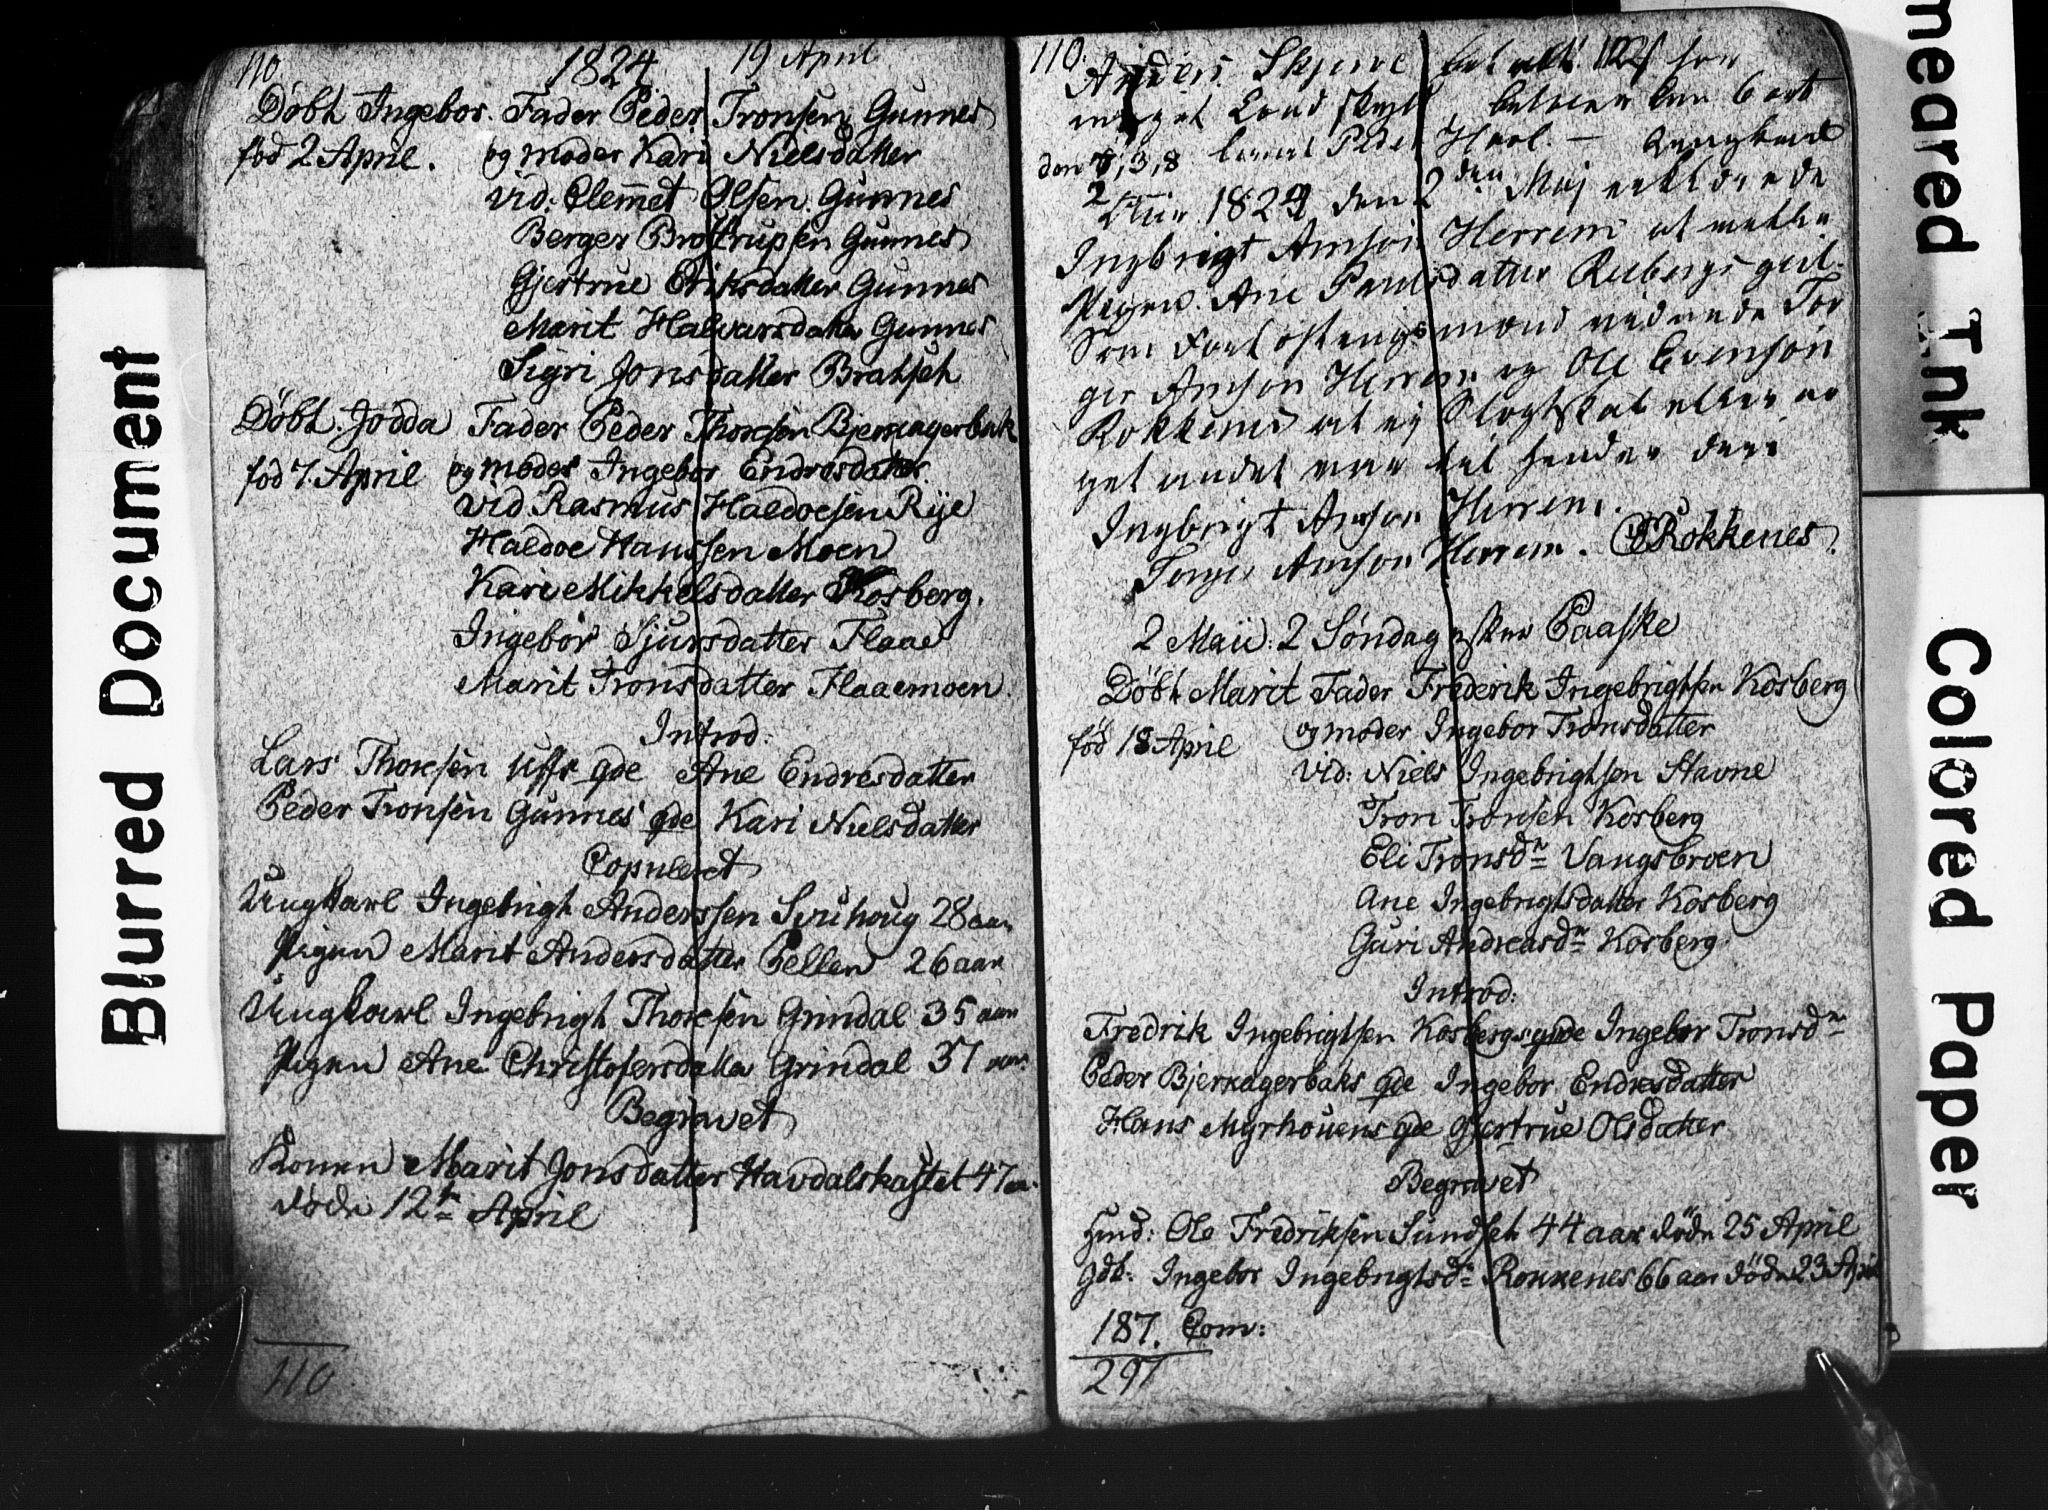 110. 1824 19 April
Døbt Ingebor. Fader Peder Tronsen Gunnes
fød 2 April. og moder Kari Nielsdatter
vid: Clemmet Olsen Gunnes
Berger Brottrupsen Gunnes
Gjertrue Eriksdatter Gunnes
Marit Halvarsdatter Gunnes
Sigri Jonsdatter Bratset
Døbt. Jodda Fader Peder Thoresen Bjerkagerbak
fød 7. April og moder Ingebor Endresdatter
vid Rasmus Haldoesen Rye
Haldoe Hanssen Moen
Kari Mikkelsdatter Kosberg.
Ingebor Sjursdatter Flaae
Marit Tronsdatter Flaaemoen.
Introd:
Lars Thoresen Uffs qde Ane Endresdatter
Peder Tronsen Gunnes qde Kari Nielsdatter
Copuleret
Ungkarl Ingebrigt Anderssen Svuhoug 28 aar
Pigen Marit Andersdatter Pellen 26 aar
Ungkarl Ingebrigt Thoresen Grindal 35 aar
Pigen Ane Christofersdatter Grindal 37 aar.
Begravet
Konen Marit Jonsdatter Havdalskastet 47 aar
døde 12te April
110
110. Anders Skjerve
den 7,3,8
Aar 1824 den 2den Maj erklærede
Ingbrigt Amson Herrem at
Pigen. Ane Paulsdatter
Som mænd Tor
ger Amson Herrem og Ole Evenson
Rokkenes at ej Slegtskab eller no
get andet var til hender
Ingbrigt Amson Herrem.
Torger Amson Herrem. Rokkenes.
2 Maii: 2 Søndag efter Paaske
Døbt Marit Fader Frederik Ingebrigtsen Kosberg
fød 18 April og moder Ingebor Tronsdatter
vid: Niels Ingebrigtsen Stavne
Tron Tronsen Kosberg
Eli Tronsdr Vangsbroen
Ane Ingebrigtsdatter Kosberg
Guri Andreasdr Kosberg.
Introd:
Fredrik Ingebrigtsen Kosbergs qde Ingebor Tronsdr
Peder Bjerkagerbaks qde Ingebor Endresdatter
Hans Myrhouens qde Gjertrue Olsdatter
Begravet
Hmd: Ole Fredriksen Sundset 44 aar døde 25 April
Qdl: Ingebor Ingebrigtsdr Rokkenes 66 aar døde 23 April
187. Com:
297
Blurred Document
meared Ink
Colored Paper